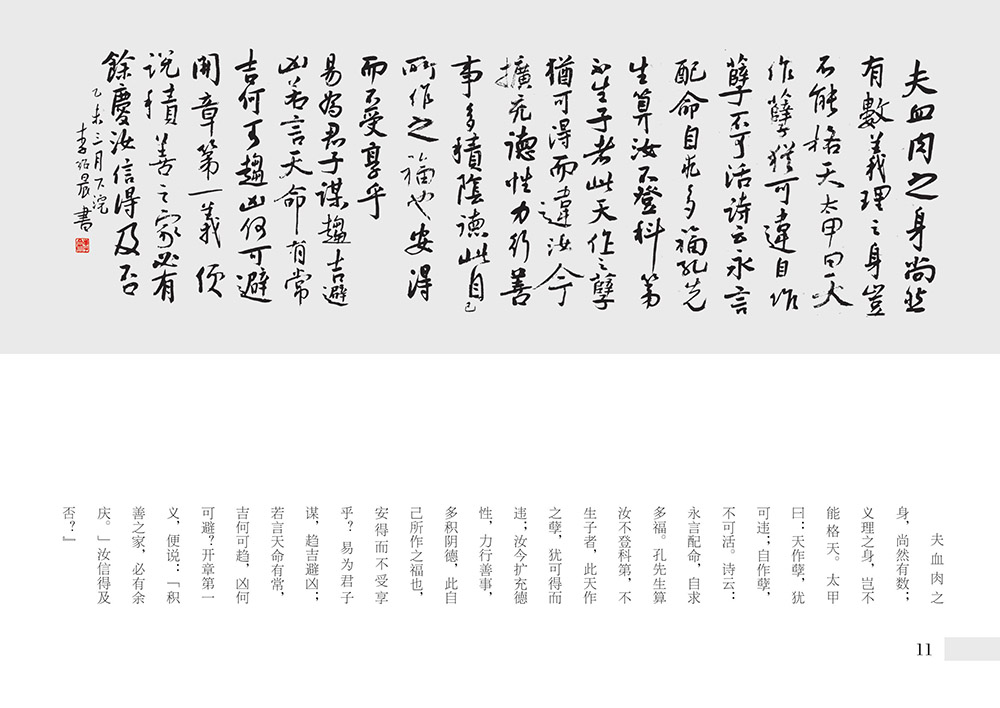 夫血肉之身尚然
有數義理之身豈
不能格天太甲曰天
作孽猶可違自作
孽不可活詩云永言
配命自求多福孔先
生算汝不登科第
不生子者此天作之孽
猶可得而違汝今
擴充德性力行善
事多積陰德此自己
所作之福也安得
而不受享乎
易為君子謀趨吉避
凶若言天命有常
吉何可趨凶何可避
開章第一義便
說積善之家必有
餘慶汝信得及否
乙未三月下浣
李
晨書
夫血肉之
身,尚然有数;
义理之身,岂不
能格天。太甲
曰:天作孽,犹
可违;自作孽,
不可活。诗云:
永言配命,自求
多福。孔先生算
汝不登科第,不
生子者,此天作
之孽,犹可得而
违;汝今扩充德
性,力行善事,
多积阴德,此自
己所作之福也,
安得而不受享
乎?易为君子
谋,趋吉避凶;
若言天命有常,
吉何可趋,凶何
可避?开章第一
义,便说:「积
善之家,必有余
庆。」汝信得及
否?』
11